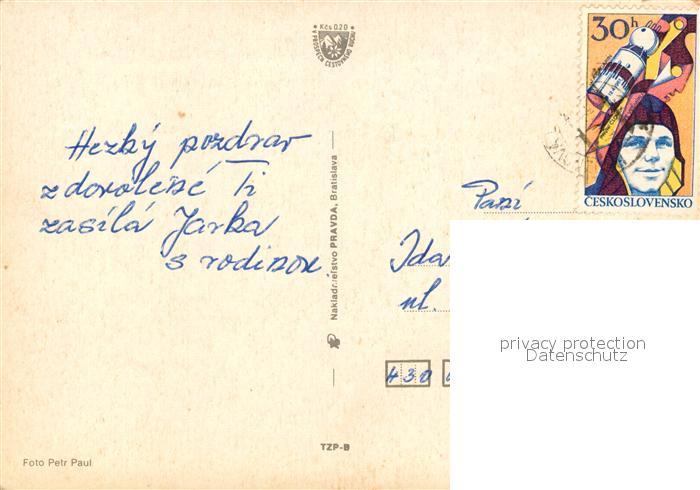 Kčs 0,20
V PROSPECH CESTOVNÉHO RUCHU
30h
ČESKOSLOVENSKO
Hezký pozdrav
z dovolené Ti
zasílá Jarka
s rodinou.
Nakladateľstvo PRAVDA, Bratislava
Paní
Ida
ul.
430
privacy protection
Datenschutz
TZP-B
Foto Petr Paul